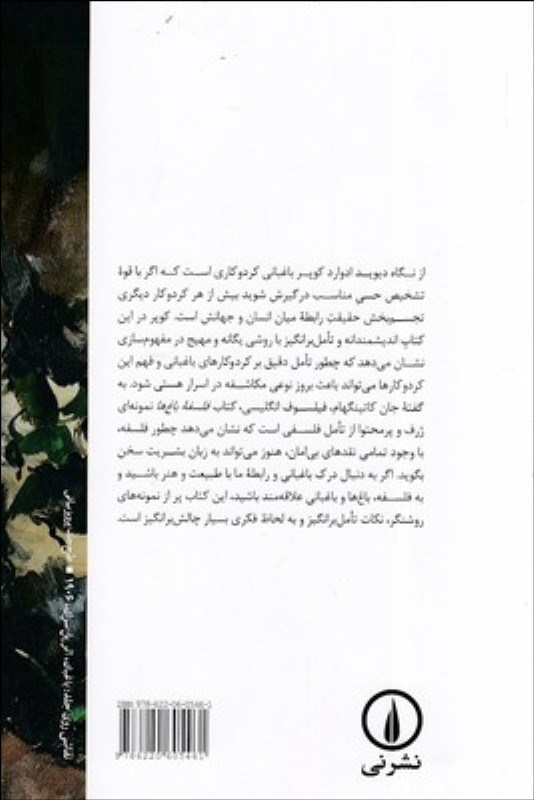 از نگاه دیوید ادوارد کوپر باغبانی کردوکاری است که اگر با قوهٔ
تشخیص حسی مناسب درگیرش شوید بیش از هر کردوکار دیگری
تجسم‌بخش حقیقتِ رابطهٔ میان انسان و جهانش است. کوپر در این
کتابِ اندیشمندانه و تأمل‌برانگیز با روشی یگانه و مهیج در مفهوم‌سازی
نشان می‌دهد که چطور تأمل دقیق بر کردوکارهای باغبانی و فهم این
کردوکارها می‌تواند باعث بروز نوعی مکاشفه در اسرار هستی شود. به
گفتهٔ جان کاتینگهام، فیلسوف انگلیسی، کتاب فلسفهٔ باغ‌ها نمونه‌ای
ژرف و پرمحتوا از تأمل فلسفی است که نشان می‌دهد چطور فلسفه،
با وجود تمامی نقدهای بی‌امان، هنوز می‌تواند به زبان بشریت سخن
بگوید. اگر به دنبال درک باغبانی و رابطهٔ ما با طبیعت و هنر باشید و
به فلسفه، باغ‌ها و باغبانی علاقه‌مند باشید، این کتاب پر از نمونه‌های
روشنگر، نکات تأمل‌برانگیز و به لحاظ فکری بسیار چالش‌برانگیز است.
ISBN 978-622-06-0546-1
9 786220 605461
نشرنی